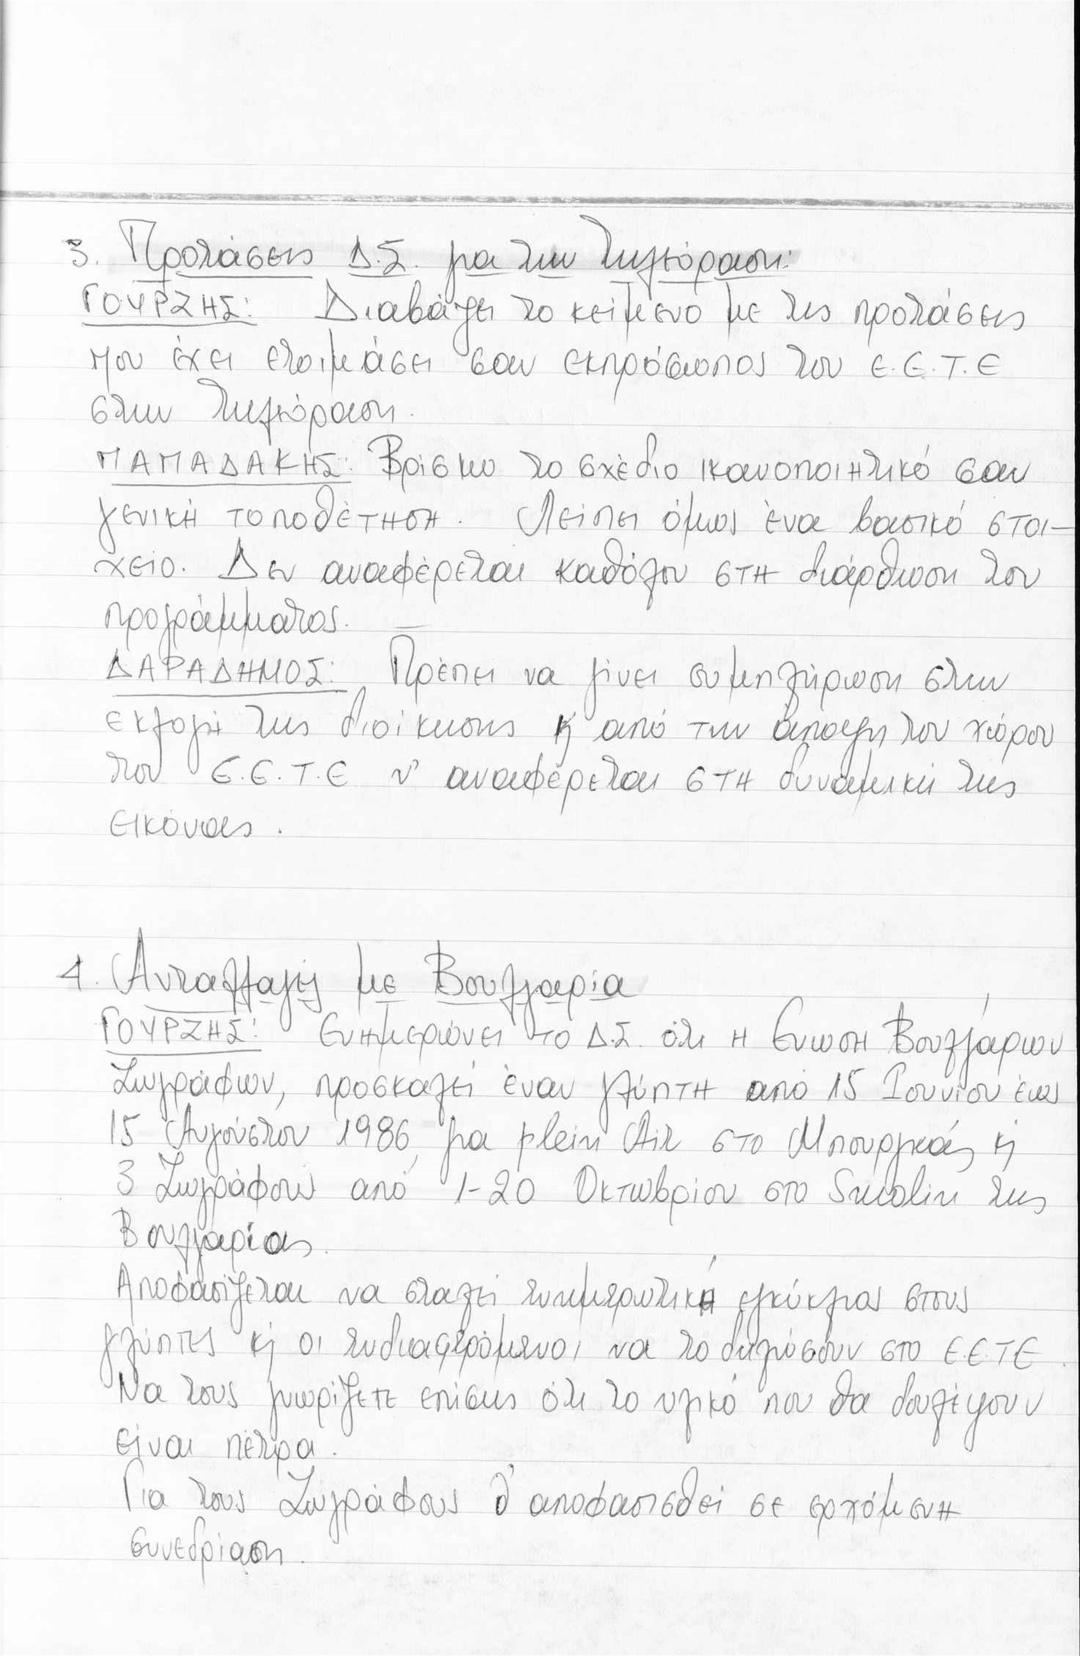 3. Προτάσεις Δ.Σ. για την Τηλεόραση:
ΓΟΥΡΖΗΣ: Διαβάζει το κείμενο με τις προτάσεις
που έχει ετοιμάσει σαν εκπρόσωπος του Ε.Ε.Τ.Ε
στην Τηλεόραση.
ΠΑΠΑΔΑΚΗΣ: Βρίσκω το σχέδιο ικανοποιητικό σαν
γενική τοποθέτηση. Λείπει όμως ένα βασικό στοι-
χείο. Δεν αναφέρεται καθόλου στη διάρθρωση του
προγράμματος.
ΔΑΡΑΔΗΜΟΣ: Πρέπει να γίνει συμπλήρωση στην
εκλογή της διοίκησης κ' από την άποψη του χώρου
του Ε.Ε.Τ.Ε ν' αναφέρεται στη δυναμική της
εικόνας.
4. Ανταλλαγές με Βουλγαρία
ΓΟΥΡΖΗΣ: Ενημερώνει το Δ.Σ. ότι η Ένωση Βουλγάρων
Ζωγράφων, προσκαλεί έναν γλύπτη από 15 Ιουνίου έως
15 Αυγούστου 1986, για plein Air στο Μπουργκάς κ'
3 Ζωγράφους από 1-20 Οκτωβρίου στο της
Βουλγαρίας.
Αποφασίζεται να σταλεί ενημερωτική εγκύκλιος στους
γλύπτες κ' οι ενδιαφερόμενοι να το δηλώσουν στο Ε.Ε.Τ.Ε.
Να τους γνωρίζετε επίσης ότι το υλικό που θα δουλέψουν
είναι πέτρα.
Για τους Ζωγράφους θ' αποφασισθεί σε ερχόμενη
συνεδρίαση.